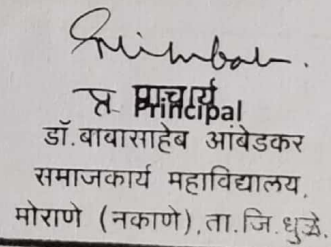 प्र प्राचार्य
Principal
डॉ.बाबासाहेब आंबेडकर
समाजकार्य महाविद्यालय,
मोराणे (नकाणे),ता.जि.धुळे.